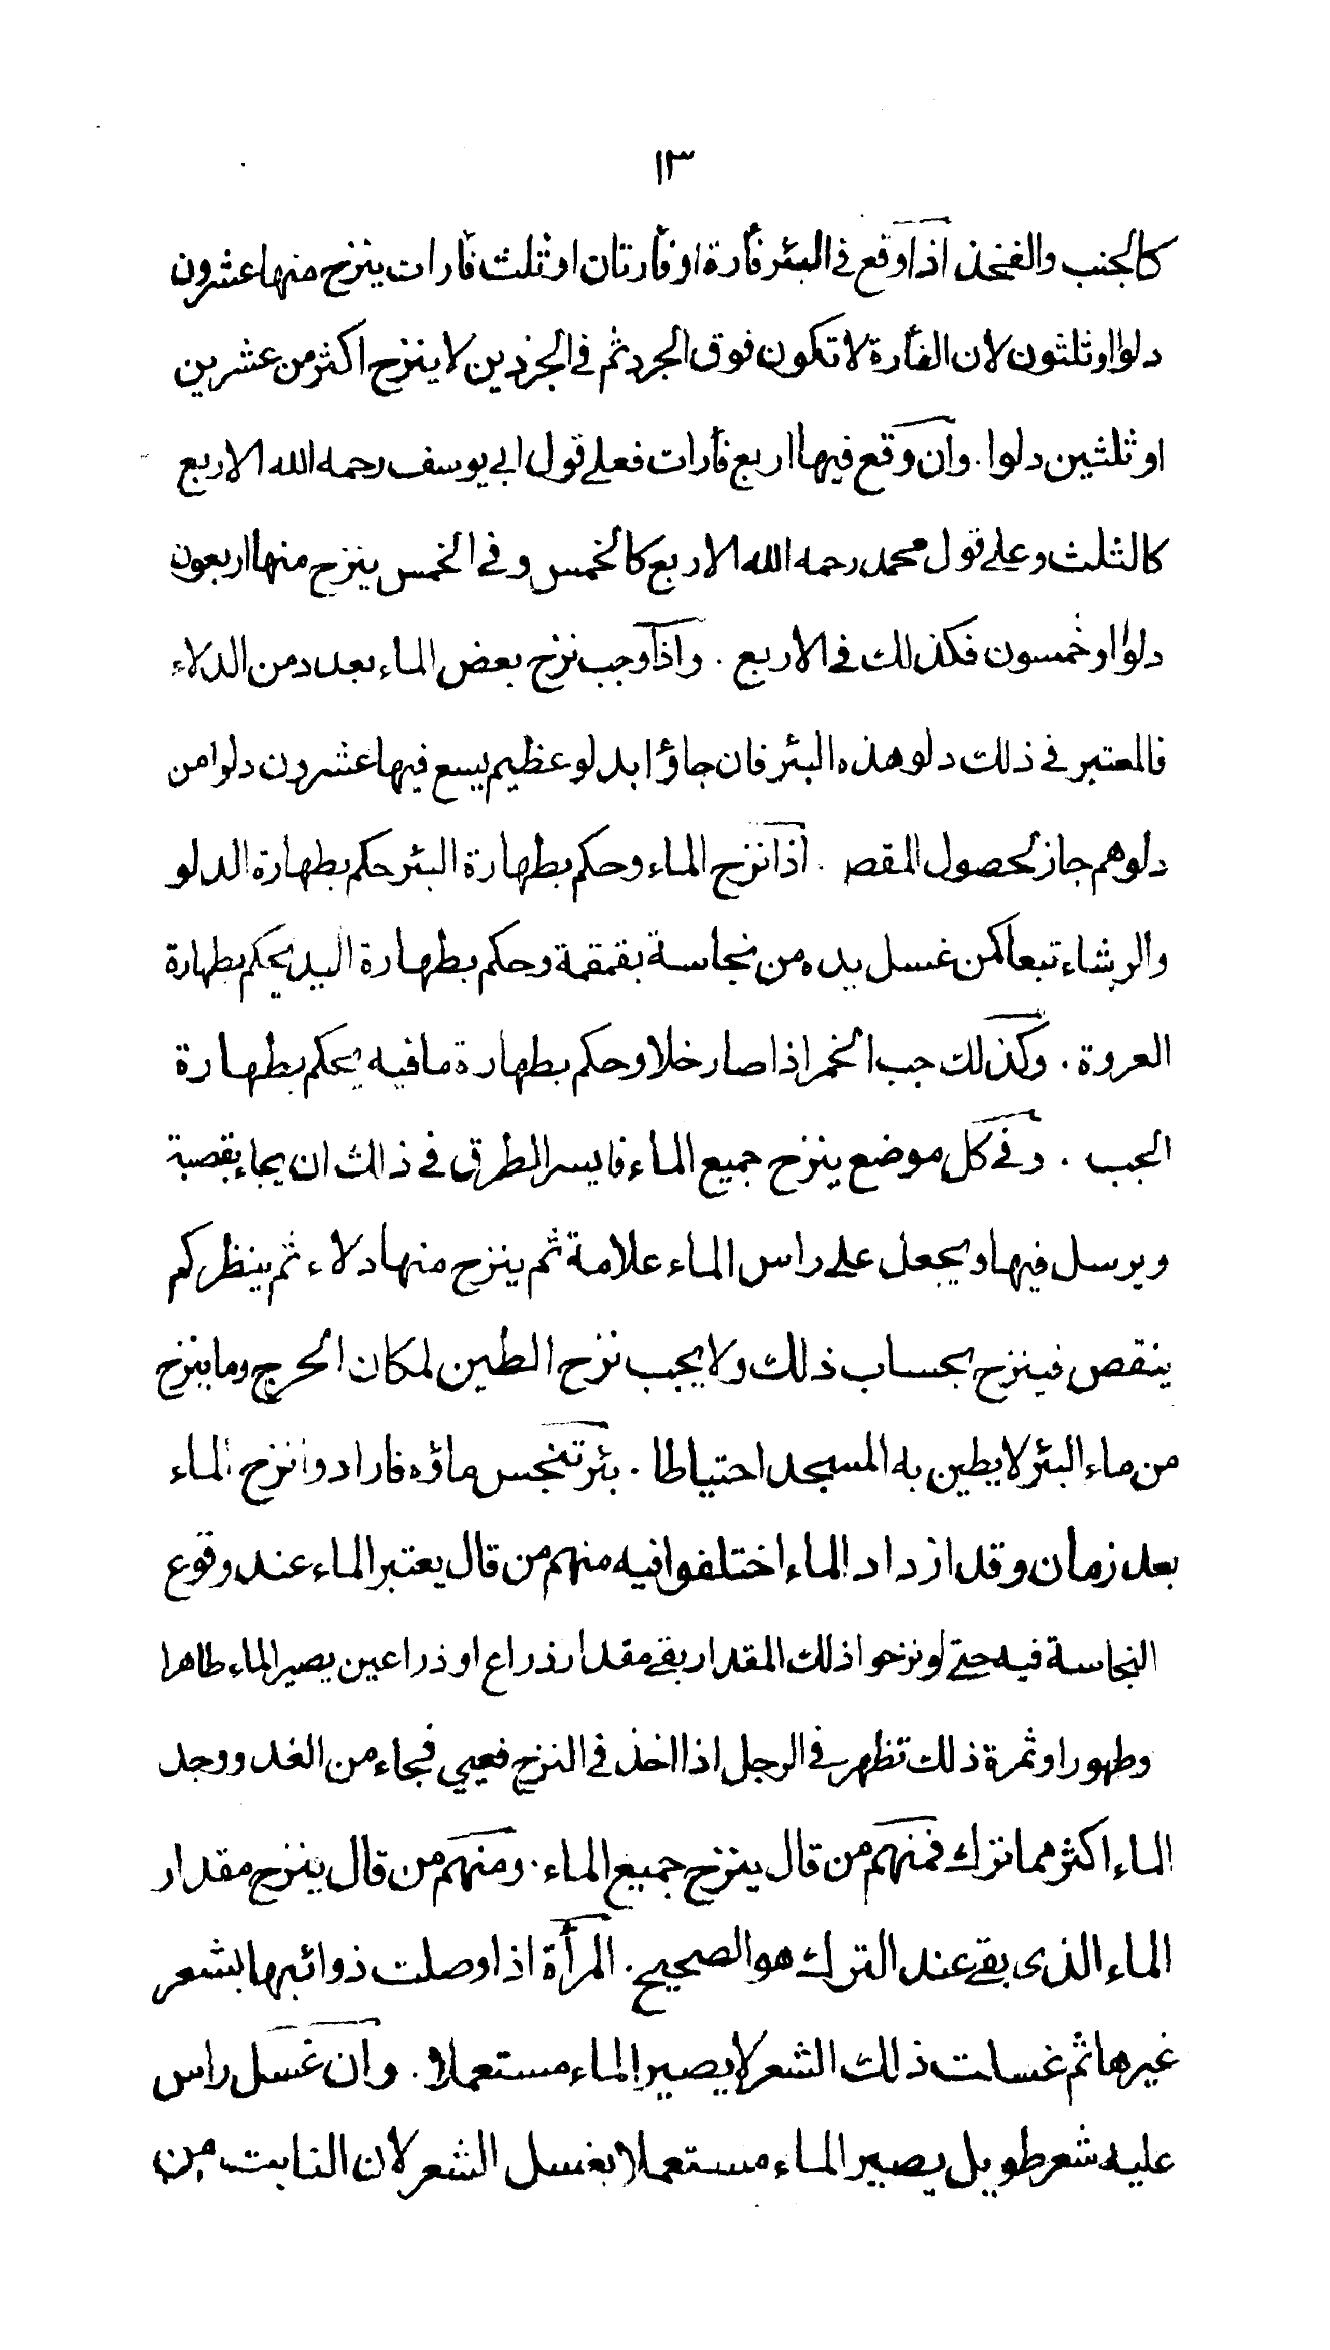 ١٣
كالجنب والفخذ اذا وقع فى البئر فأرة او فأرتان او ثلث فأرات ينزح منها عشرون
دلوا او ثلثون لان الفأرة لا تكون فوق الجرد ثم فى الجرذين لا ينزح اكثر من عشرين
او ثلثين دلوا . وان وقع فيها اربع فأرات فعلى قول ابى يوسف رحمه الله الاربع
كالثلث وعلى قول محمد رحمه الله الاربع كالخمس وفى الخمس ينزح منها اربعون
دلوا او خمسون فكذلك فى الاربع . واذا وجب نزح بعض الماء بعدد من الدلاء
فالمعتبر فى ذلك دلو هذه البئر فان جاؤا بدلو عظيم يسع فيها عشرون دلوا من
دلوهم جاز لحصول المقص . اذا نزح الماء وحكم بطهارة البئر حكم بطهارة الدلو
والرشاء تبعا كمن غسل يده من نجاسة بقمقمة وحكم بطهارة اليد يحكم بطهارة
العروة . وكذلك جب الخمر اذا صار خلا وحكم بطهارة ما فيه يحكم بطهارة
الجب . وفى كل موضع ينزح جميع الماء فايسر الطرق فى ذلك ان يجاء بقصبة
ويرسل فيها ويجعل على راس الماء علامة ثم ينزح منها دلاء ثم ينظر كم
ينقص فينزح بحساب ذلك ولا يجب نزح الطين لمكان الحرج وما ينزح
من ماء البئر لا يطين به المسجد احتياطا . بئر تنجس ماؤه فارادوا نزح الماء
بعد زمان وقد ازداد الماء اختلفوا فيه منهم من قال يعتبر الماء عند وقوع
النجاسة فيه حتى لو نزحوا ذلك المقدار بقى مقدار ذراع او ذراعين يصير الماء طاهرا
وطهورا وثمرة ذلك تظهر فى الرجل اذا اخذ فى النزح فعيي فجاء من الغد ووجد
الماء اكثر مما ترك فمنهم من قال ينزح جميع الماء . ومنهم من قال ينزح مقدار
الماء الذى بقى عند الترك هو الصحيح . المرأة اذا وصلت ذوائبها بشعر
غيرها ثم غسلت ذلك الشعر لا يصير الماء مستعملا . وان غسل راس
عليه شعر طويل يصير الماء مستعملا بغسل الشعر لان النابت من